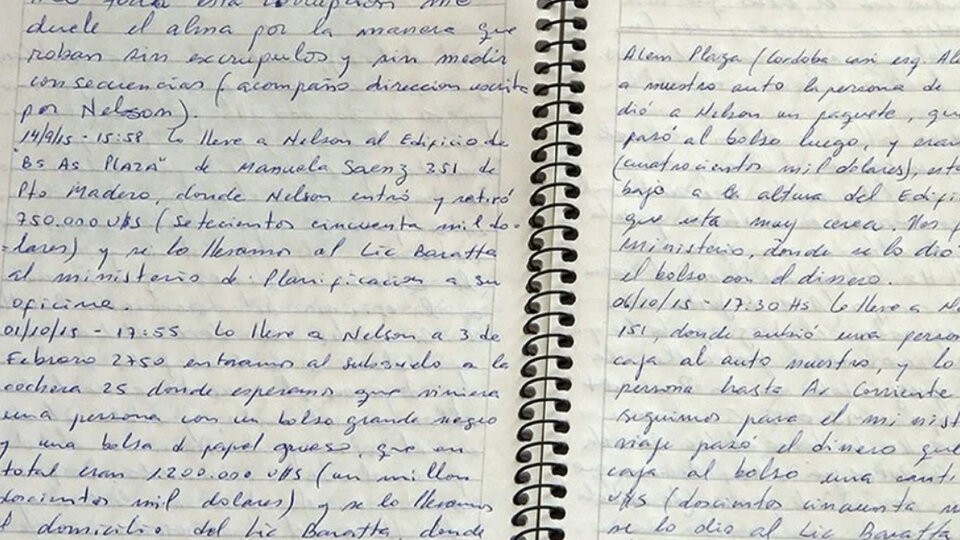 toda esta corrupcion me
duele el alma por la manera que
roban sin escrupulos y sin medir
consecuencias (acompaño direccion escrita
por Nelson).
14/9/15 - 15:58 Lo lleve a Nelson al Edificio de
"BS AS PLAZA" de Manuela Saenz 351 de
Pto Madero, donde Nelson entró y retiró
750.000 U$S (setecientos cincuenta mil do-
lares) y se lo llevamos al Lic Baratta
al ministerio de Planificacion a su
oficina.
01/10/15 - 17:55 Lo lleve a Nelson a 3 de
Febrero 2750 entramos al subsuelo a la
cochera 25 donde esperamos que viniera
una persona con un bolso grande negro
y una bolsa de papel grueso, que en
total eran 1.200.000 U$S (un millon
doscientos mil dolares) y se lo llevamos
domicilio del Lic Baratta, donde
Alem Plaza (Cordoba casi esq Ale
a nuestro auto la persona de
dió a Nelson un paquete, que
pasó al bolso luego, y eran
(cuatrocientos mil dolares), esta
bajo a la altura del Edific
que esta muy cerca. Nos
ministerio, donde se lo dio
el bolso con el dinero.
06/10/15 - 17:30 HS Lo lleve a Ne
151, donde subió una person
caja al auto nuestro, y lo
persona hasta Av Corriente
seguimos para el minist
viaje pasó el dinero que
caja al bolso una canti
U$S (doscientos cincuenta m
se lo dio al Lic Baratta